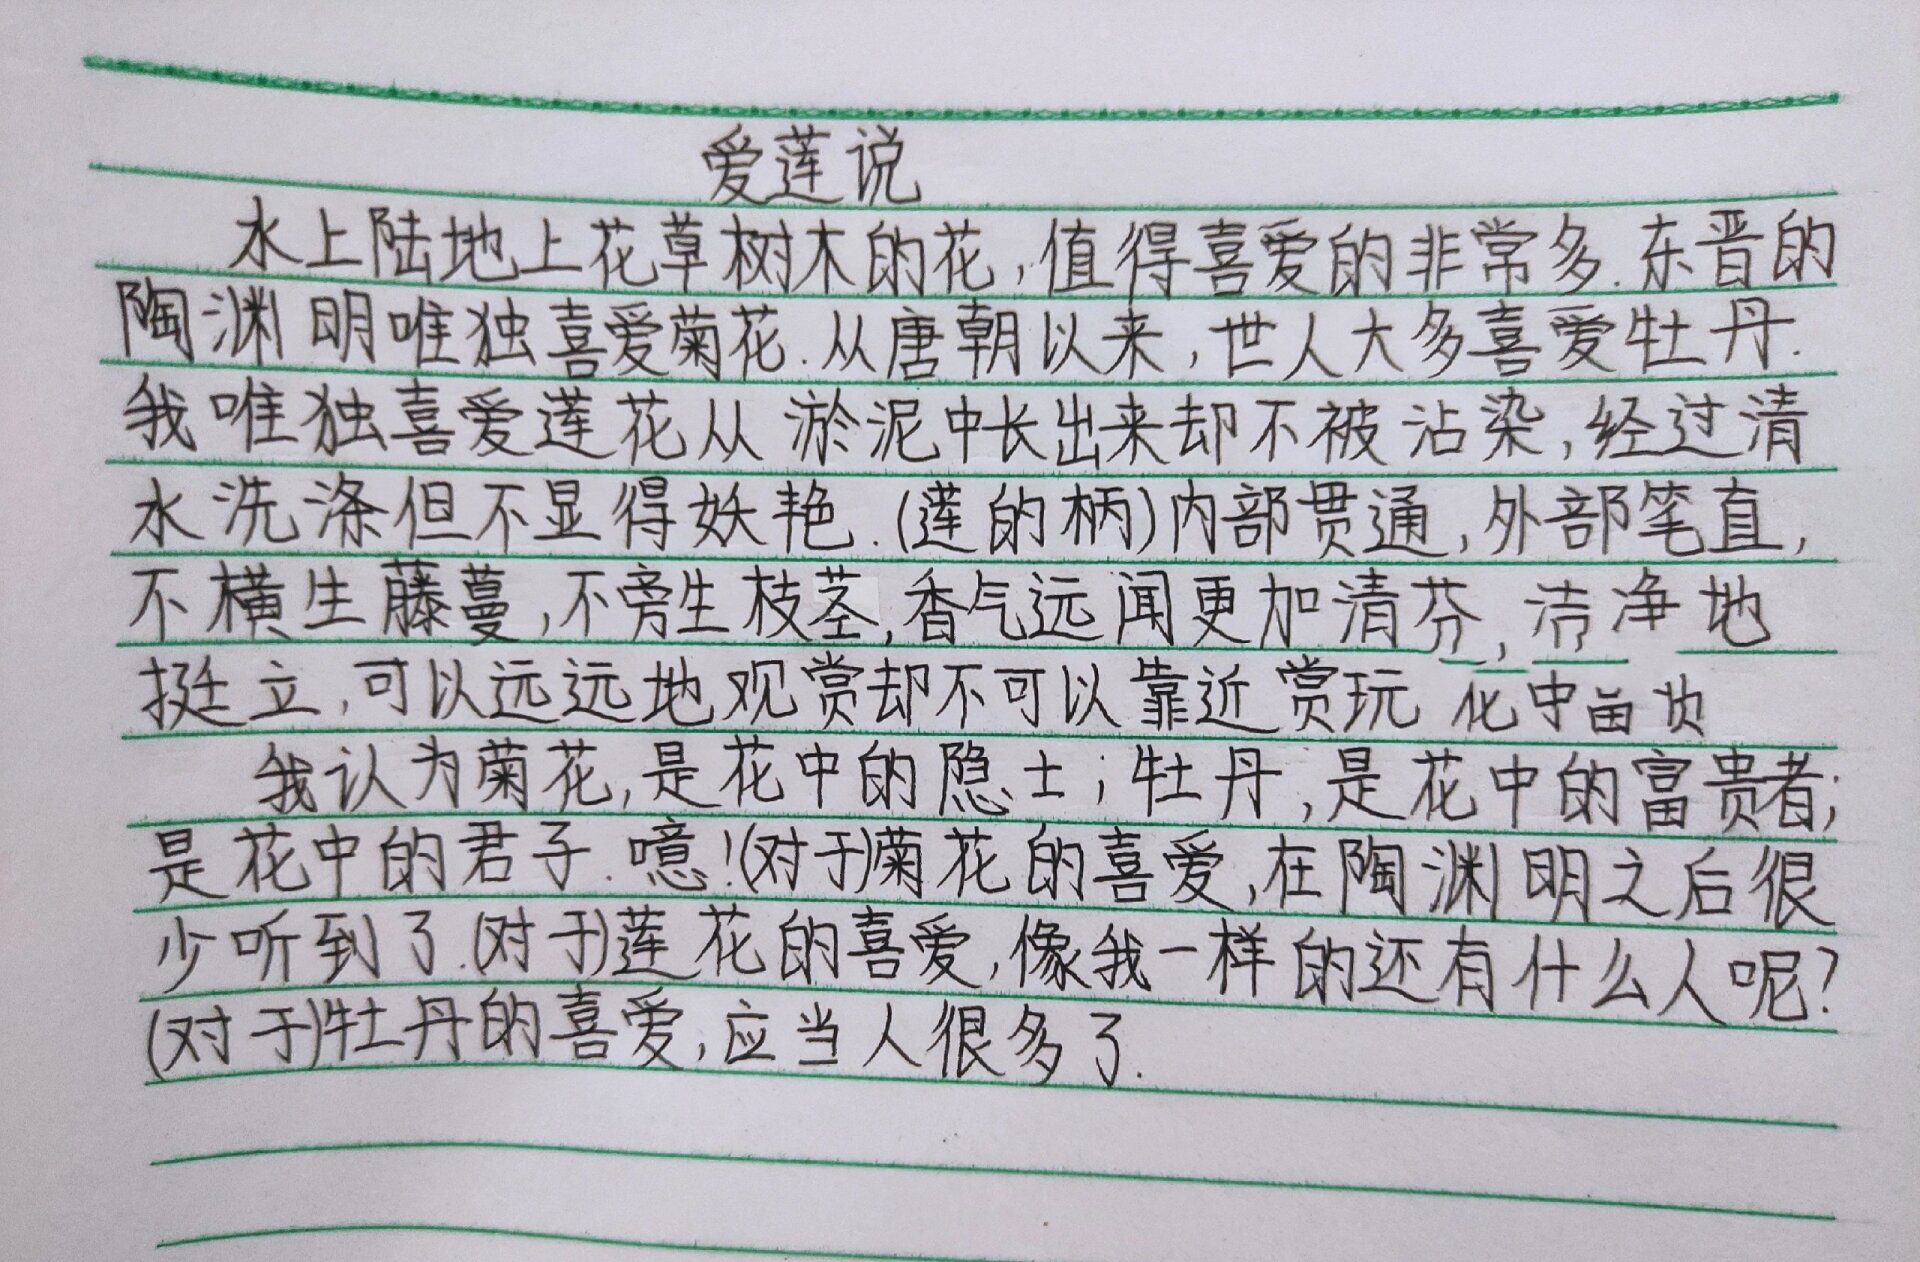 爱莲说
水上陆地上花草树木的花,值得喜爱的非常多.东晋的
陶渊明唯独喜爱菊花.从唐朝以来,世人大多喜爱牡丹.
我唯独喜爱莲花从淤泥中长出来却不被沾染,经过清
水洗涤但不显得妖艳.(莲的柄)内部贯通,外部笔直,
不横生藤蔓,不旁生枝茎,香气远闻更加清芬,洁净地
挺立,可以远远地观赏却不可以靠近赏玩
我认为菊花,是花中的隐士;牡丹,是花中的富贵者;
是花中的君子.噫!(对于)菊花的喜爱,在陶渊明之后很
少听到了.(对于)莲花的喜爱,像我一样的还有什么人呢?
(对于)牡丹的喜爱,应当人很多了.